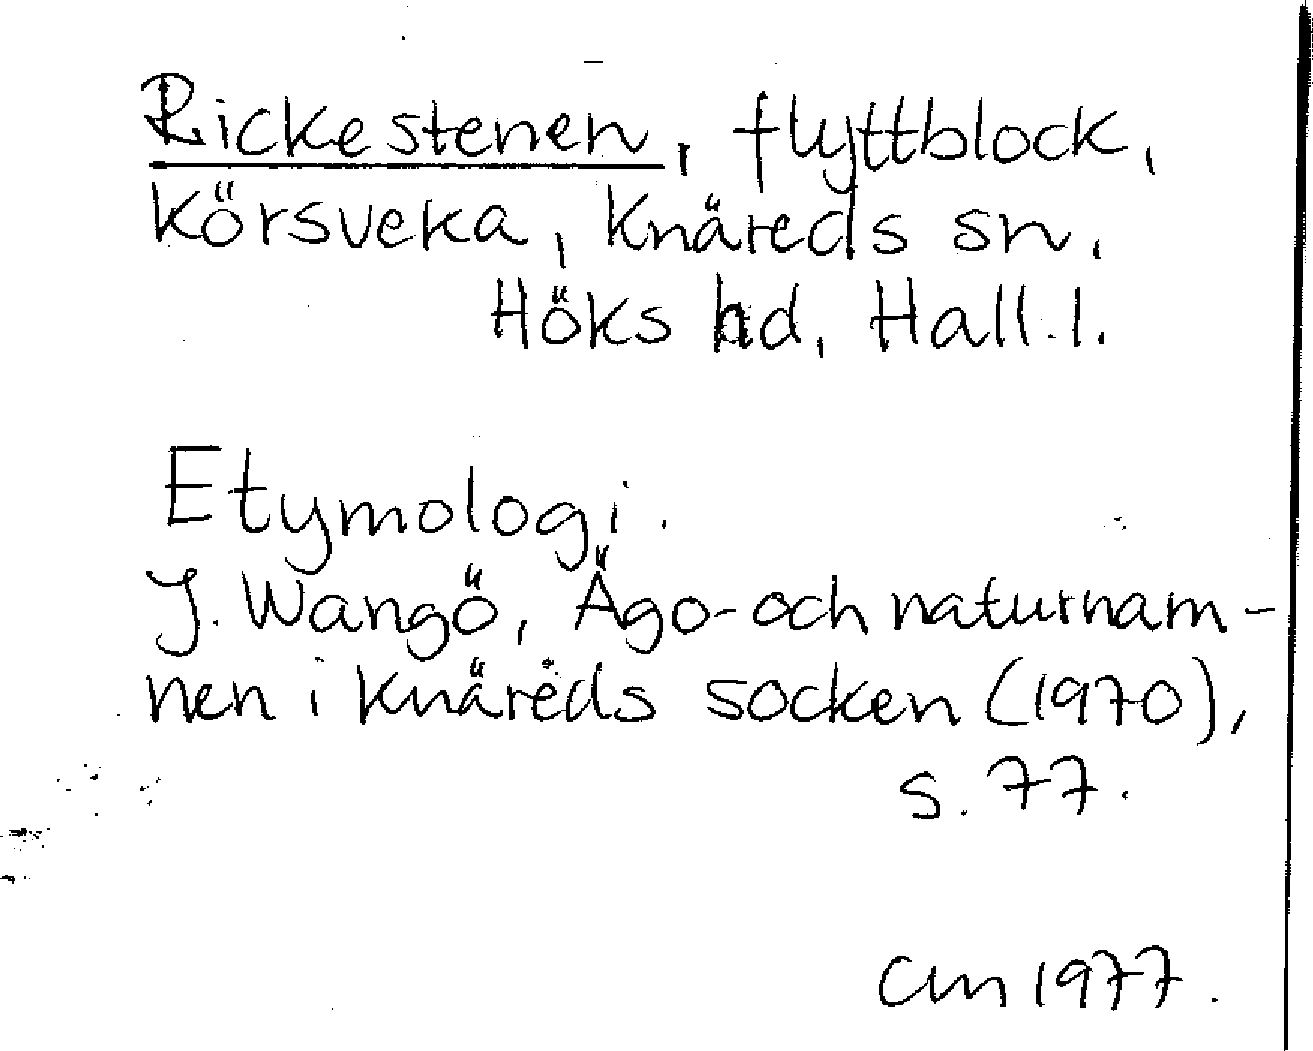 Rickestenen, flyttblock,
Körsveka, Knäreds sn,
Höks hd, Hall. l.
Etymologi.
J. Wangö, Ägo- och naturnam-
nen i Knäreds socken (1970),
s. 77.
CM 1977.